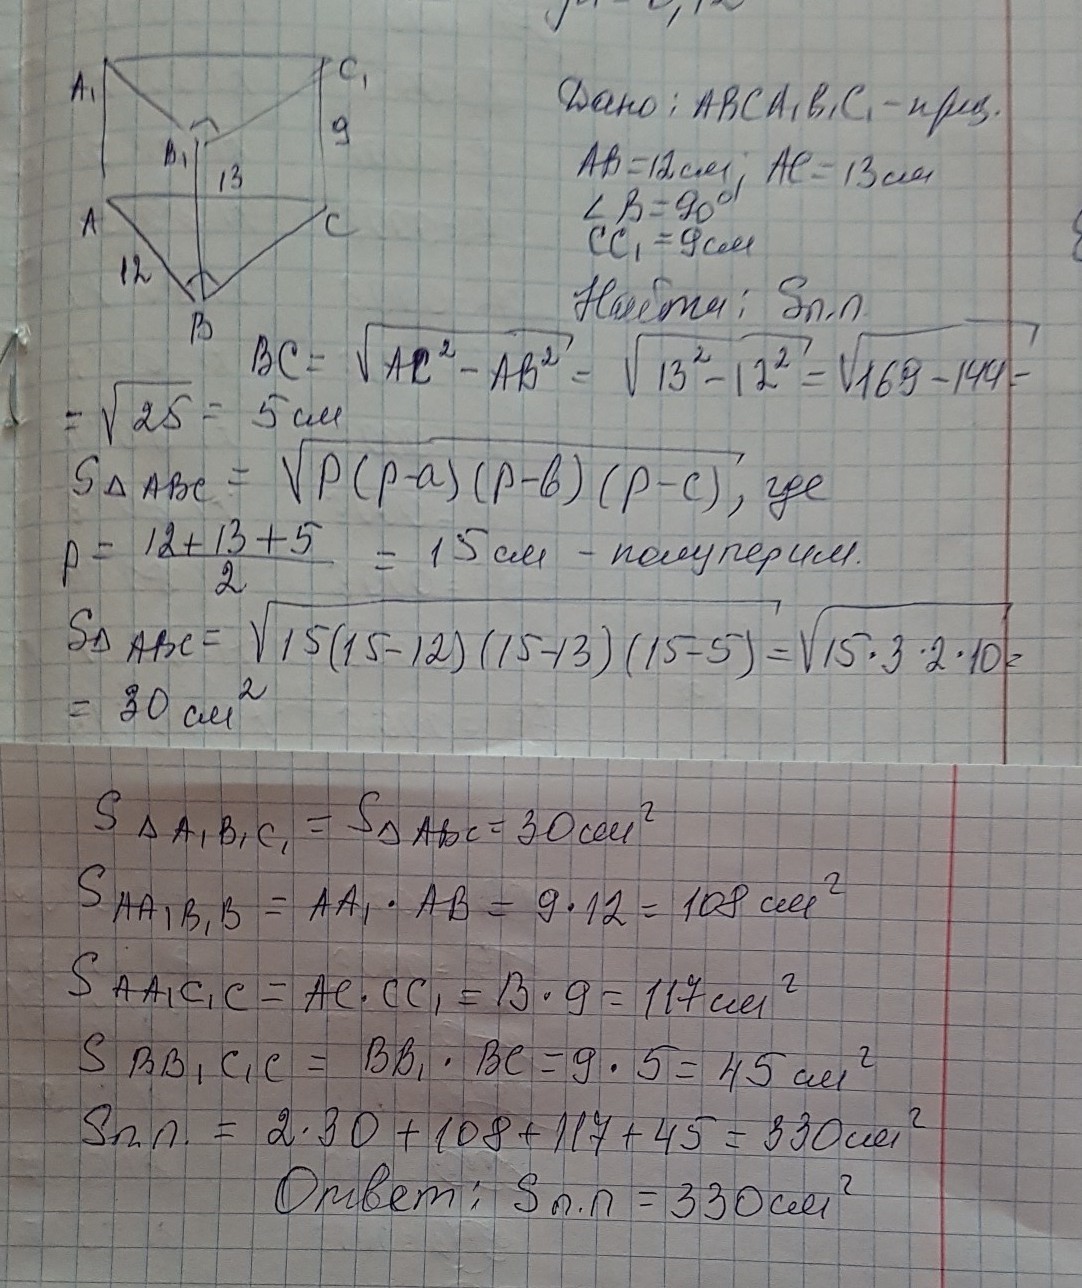 A₁
C₁
9
B₁
13
A
C
12
B
Дано: ABCA₁B₁C₁ – приз.
AB = 12 см; AC = 13 см
∠B = 90°
CC₁ = 9 см
Найти: Sп.п
BC = √AC² – AB² = √13² – 12² = √169 – 144 =
= √25 = 5 см
S△ABC = √p(p-a)(p-b)(p-c), где
p = 12+13+5 / 2 = 15 см – полуперим.
S△ABC = √15(15-12)(15-13)(15-5) = √15·3·2·10 =
= 30 см²
S△A₁B₁C₁ = S△ABC = 30 см²
SAA₁B₁B = AA₁ · AB = 9·12 = 108 см²
SAA₁C₁C = AC·CC₁ = 13·9 = 117 см²
SBB₁C₁C = BB₁ · BC = 9·5 = 45 см²
Sп.п. = 2·30 + 108 + 117 + 45 = 330 см²
Ответ: Sп.п = 330 см²